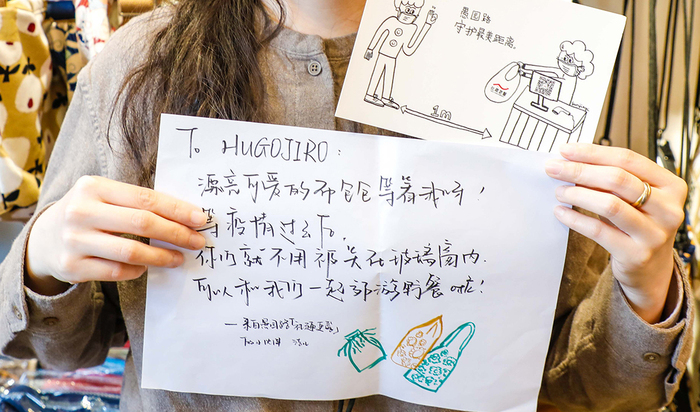 愚园路
守护最美距离。
1m
To HUGOJIRO:
漂亮可爱的布包包等着我们呀!
等疫情过去了,
你们就不用被关在玻璃窗内.
可以和我们一起郊游野餐啦!
——来自愚园路